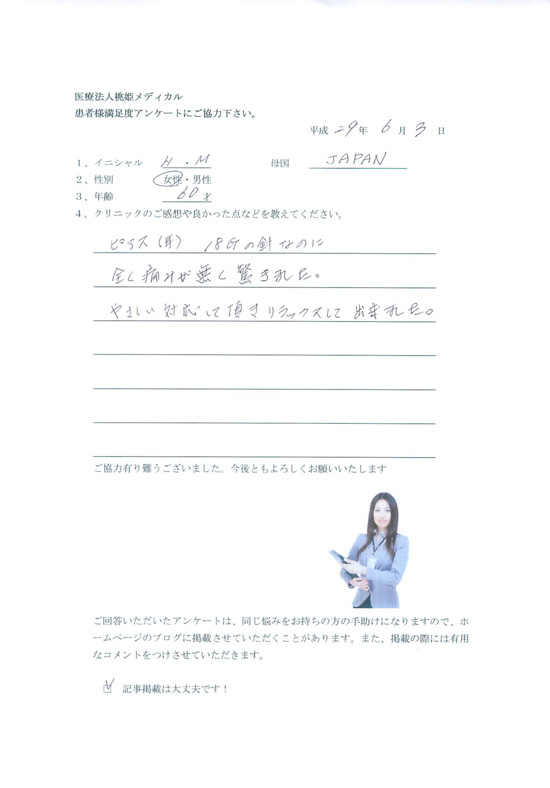 医療法人桃姫メディカル
患者様満足度アンケートにご協力下さい。
平成 29 年 6 月 3 日
1、イニシャル H . M 母国 JAPAN
2、性別 女性・男性
3、年齢 60才
4、クリニックのご感想や良かった点などを教えてください。
ピアス(耳) 18Gの針なのに
全く痛みが無く驚きました。
やさしい対応して頂きリラックスして出来ました。
ご協力有り難うございました。今後ともよろしくお願いいたします
ご回答いただいたアンケートは、同じ悩みをお持ちの方の手助けになりますので、ホ
ームページのブログに掲載させていただくことがあります。また、掲載の際には有用
なコメントをつけさせていただきます。
☑ 記事掲載は大丈夫です！